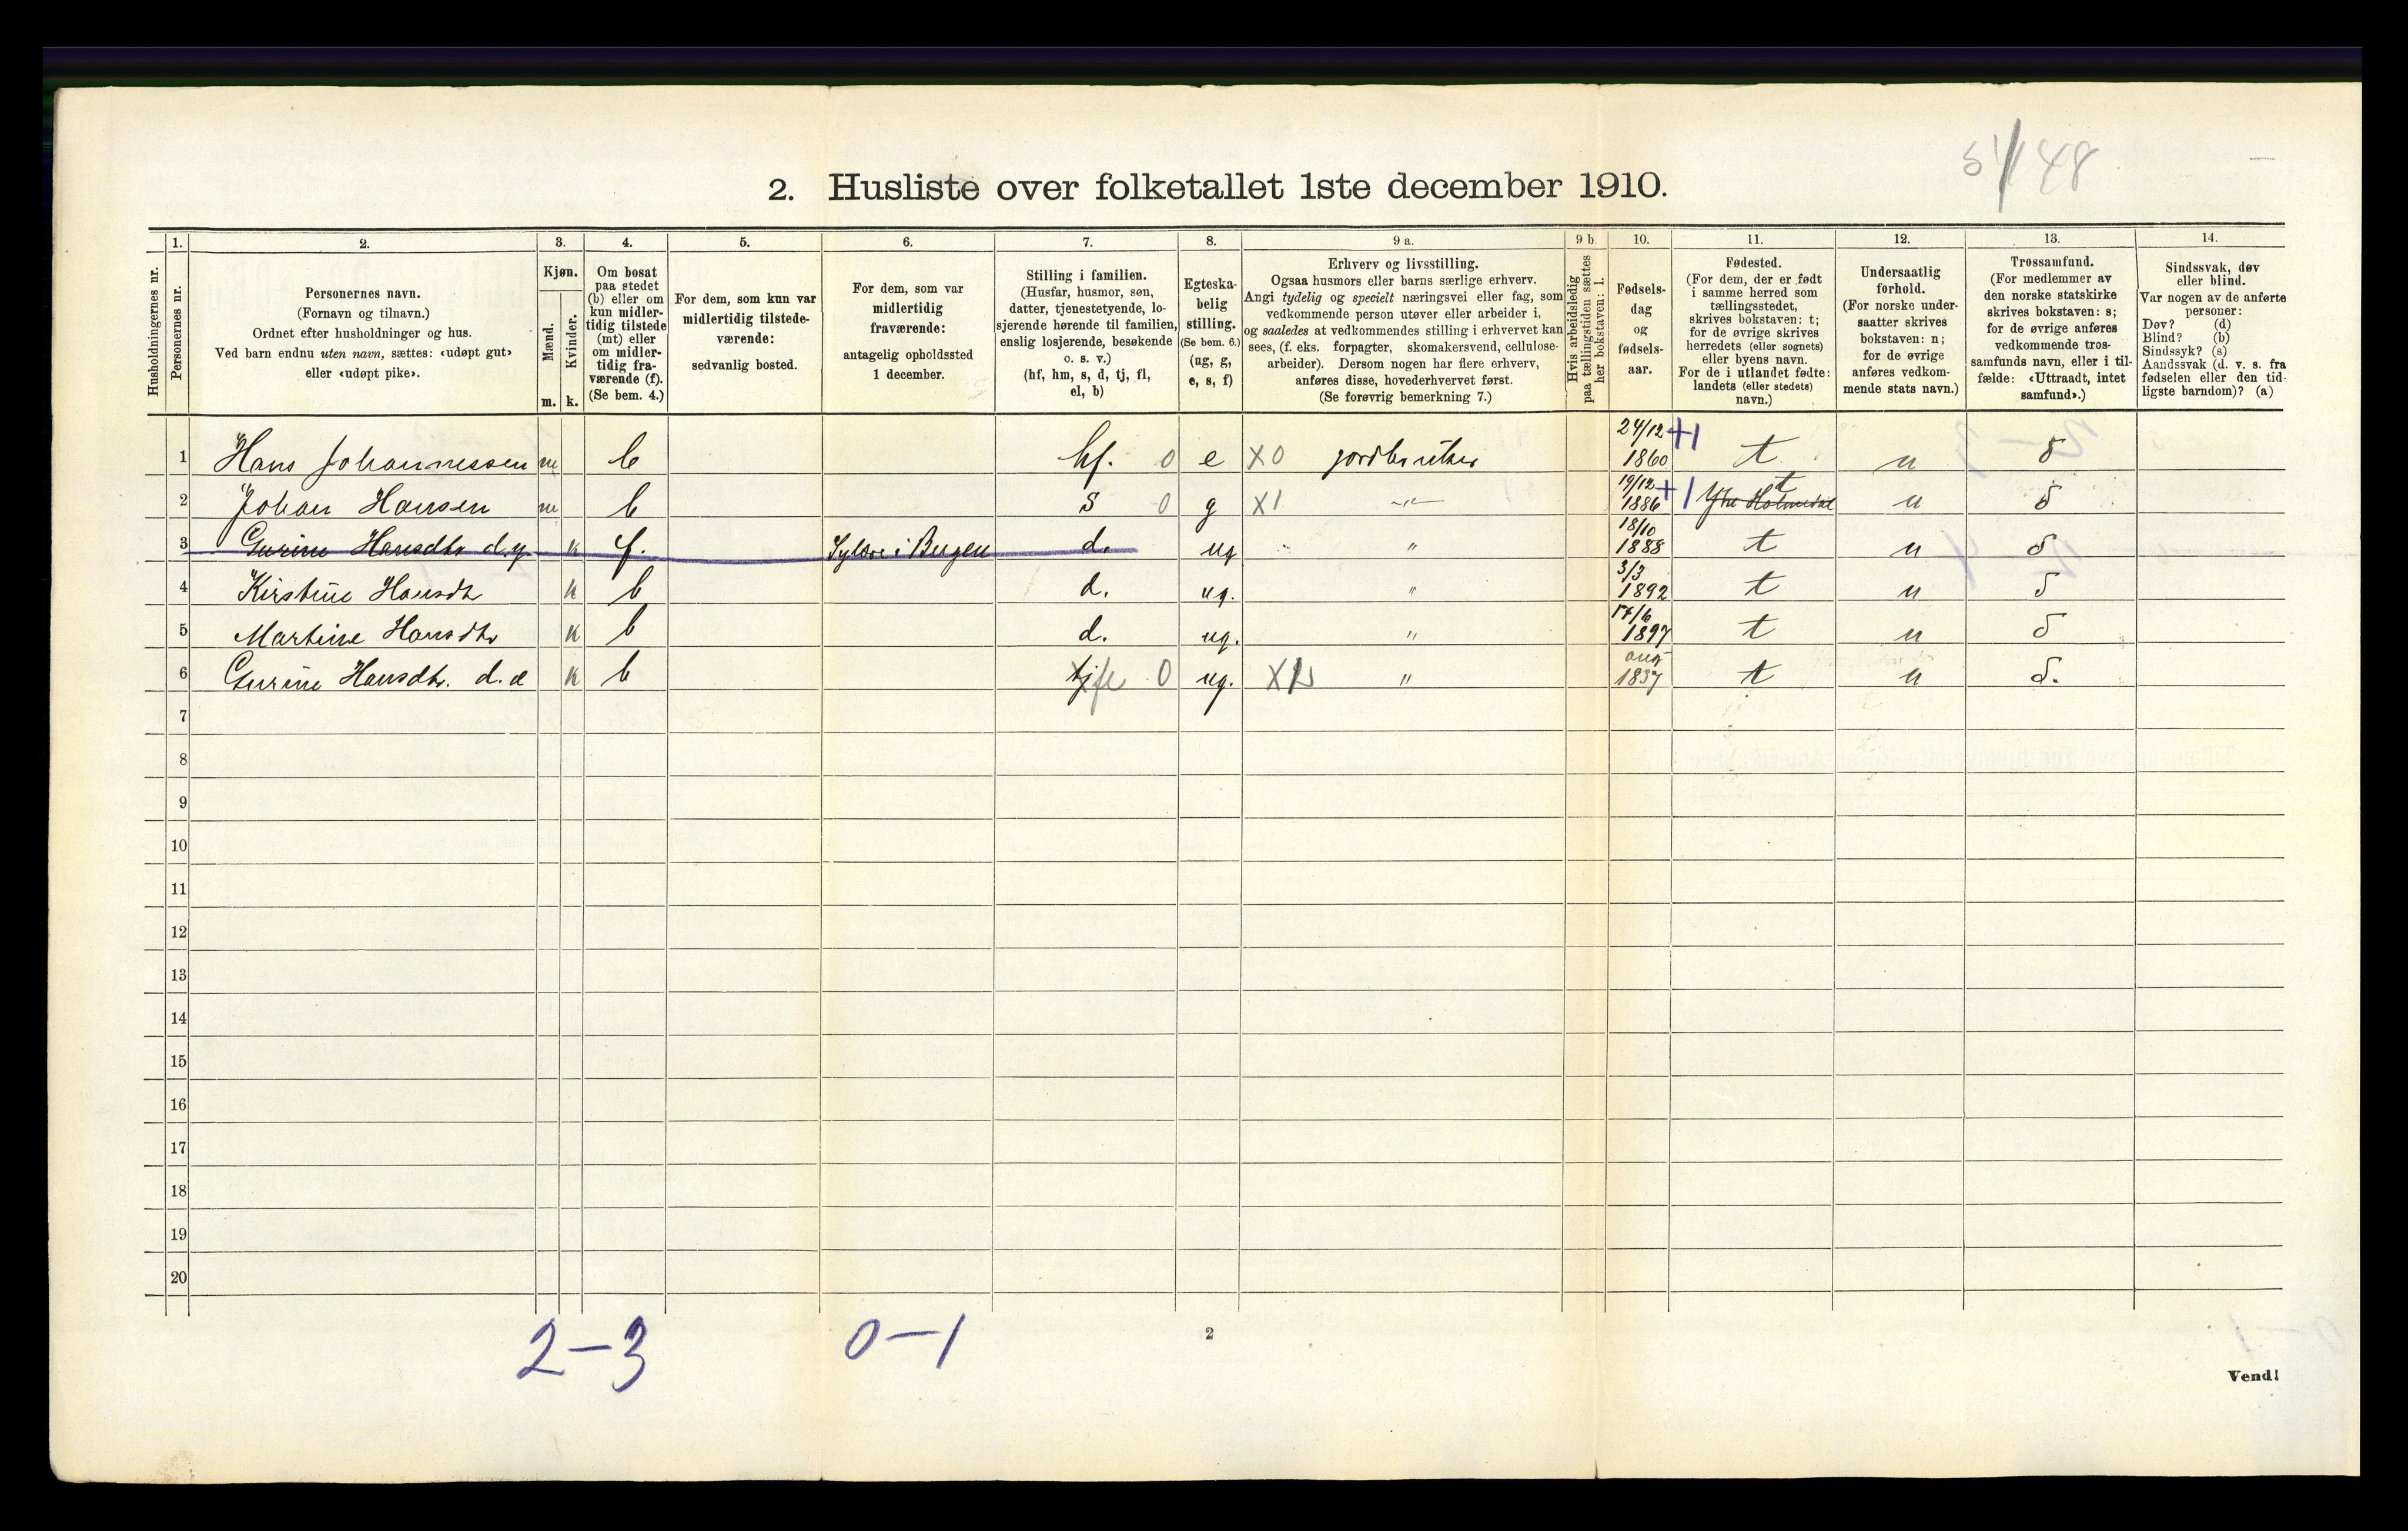 51/48
2. Husliste over folketallet 1ste december 1910.
1. 2. 3. 4. 5. 6. 7. 8. 9 a. 9 b. 10. 11. 12. 13. 14.
Husholdningernes nr.
Personernes nr.
Personernes navn.
(Fornavn og tilnavn.)
Ordnet efter husholdninger og hus.
Ved barn endnu uten navn, sættes: «udøpt gut»
eller «udøpt pike».
Kjøn.
Mænd.
Kvinder.
m. k.
Om bosat
paa stedet
(b) eller om
kun midler-
tidig tilstede
(mt) eller
om midler-
tidig fra-
værende (f).
(Se bem. 4.)
For dem, som kun var
midlertidig tilstede-
værende:
sedvanlig bosted.
For dem, som var
midlertidig
fraværende:
antagelig opholdssted
1 december.
Stilling i familien.
(Husfar, husmor, søn,
datter, tjenestetyende, lo-
sjerende hørende til familien,
enslig losjerende, besøkende
o. s. v.)
(hf, hm, s, d, tj, fl,
el, b)
Egteska-
belig
stilling.
(Se bem. 6.)
(ug, g,
e, s, f)
Erhverv og livsstilling.
Ogsaa husmors eller barns særlige erhverv.
Angi tydelig og specielt næringsvei eller fag, som
vedkommende person utøver eller arbeider i,
og saaledes at vedkommendes stilling i erhvervet kan
sees, (f. eks. forpagter, skomakersvend, cellulose-
arbeider). Dersom nogen har flere erhverv,
anføres disse, hovederhvervet først.
(Se forøvrig bemerkning 7.)
Hvis arbeidsledig
paa tællingstiden sættes
her bokstaven: l.
Fødsels-
dag
og
fødsels-
aar.
Fødested.
(For dem, der er født
i samme herred som
tællingsstedet,
skrives bokstaven: t;
for de øvrige skrives
herredets (eller sognets)
eller byens navn.
For de i utlandet fødte:
landets (eller stedets)
navn.)
Undersaatlig
forhold.
(For norske under-
saatter skrives
bokstaven: n;
for de øvrige
anføres vedkom-
mende stats navn.)
Trossamfund.
(For medlemmer av
den norske statskirke
skrives bokstaven: s;
for de øvrige anføres
vedkommende tros-
samfunds navn, eller i til-
fælde: «Uttraadt, intet
samfund».)
Sindssvak, døv
eller blind.
Var nogen av de anførte
personer:
Døv? (d)
Blind? (b)
Sindssyk? (s)
Aandssvak (d. v. s. fra
fødselen eller den tid-
ligste barndom)? (a)
1 Hans Johannessen m b hf. 0 e X0 jordbruker 24/12 1860 +1 t n s
2 Johan Hansen m b s 0 g X1 -"- 19/12 1886 +1 t n s
3 Gurine Hansdtr d.y. k f. i Bergen d. ug " 18/10 1888 t n s
4 Kirstine Hansdtr k b d. ug. " 3/3 1892 t n s
5 Martine Hansdtr k b d. ug. " 17/6 1897 t n s
6 Gurine Hansdtr. d. e k b tj fl 0 ug. " aug 1837 t n s.
7
8
9
10
11
12
13
14
15
16
17
18
19
20
2-3 0-1
2
Vend!